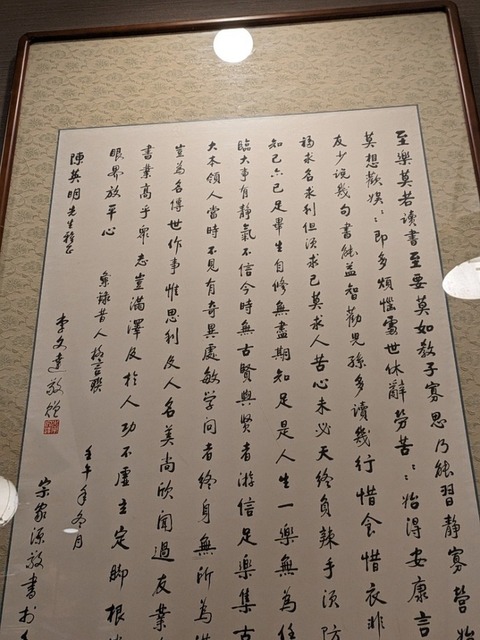 至樂莫若读書至要莫如教子寡思乃能習静寡營
莫想歡娱〻即多煩惱處世休辭勞苦〻始得安康言
友少说幾句書能益智勸兒孫多讀幾行惜食惜衣非
福求名求利但须求己莫求人苦心未必天終負辣手须防
知己六己足畢生自修無盡期知足是人生一樂無為
臨大事有静氣不信今時無古賢與賢者游信足樂集古
大本領人當時不見有奇異處敏学问者終身無所為
豈為名傳世作事惟思利及人名美尚欣聞過友業
書業高乎眾志豈滿澤及於人功不虛立定脚根
眼界放平心
集録昔人格言聯
壬午年冬月
陳英明先生雅正
李文達敬贈
宗家源敬書於